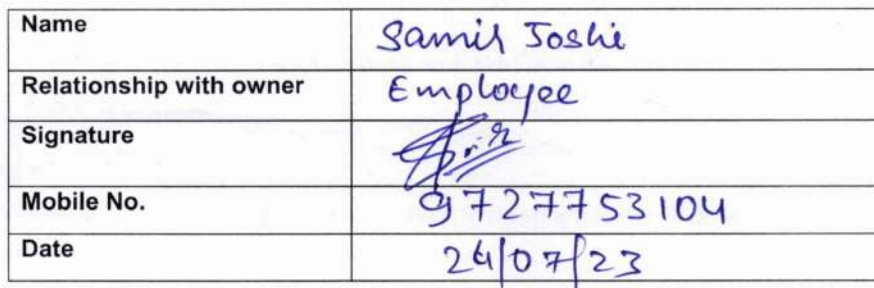 Name Samir Joshi
Relationship with owner Employee
Signature
Mobile No. 9727753104
Date 24/07/23